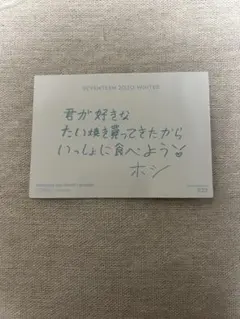 君が好きな
たい焼き買ってきたから
いっしょに食べよう
ホシ